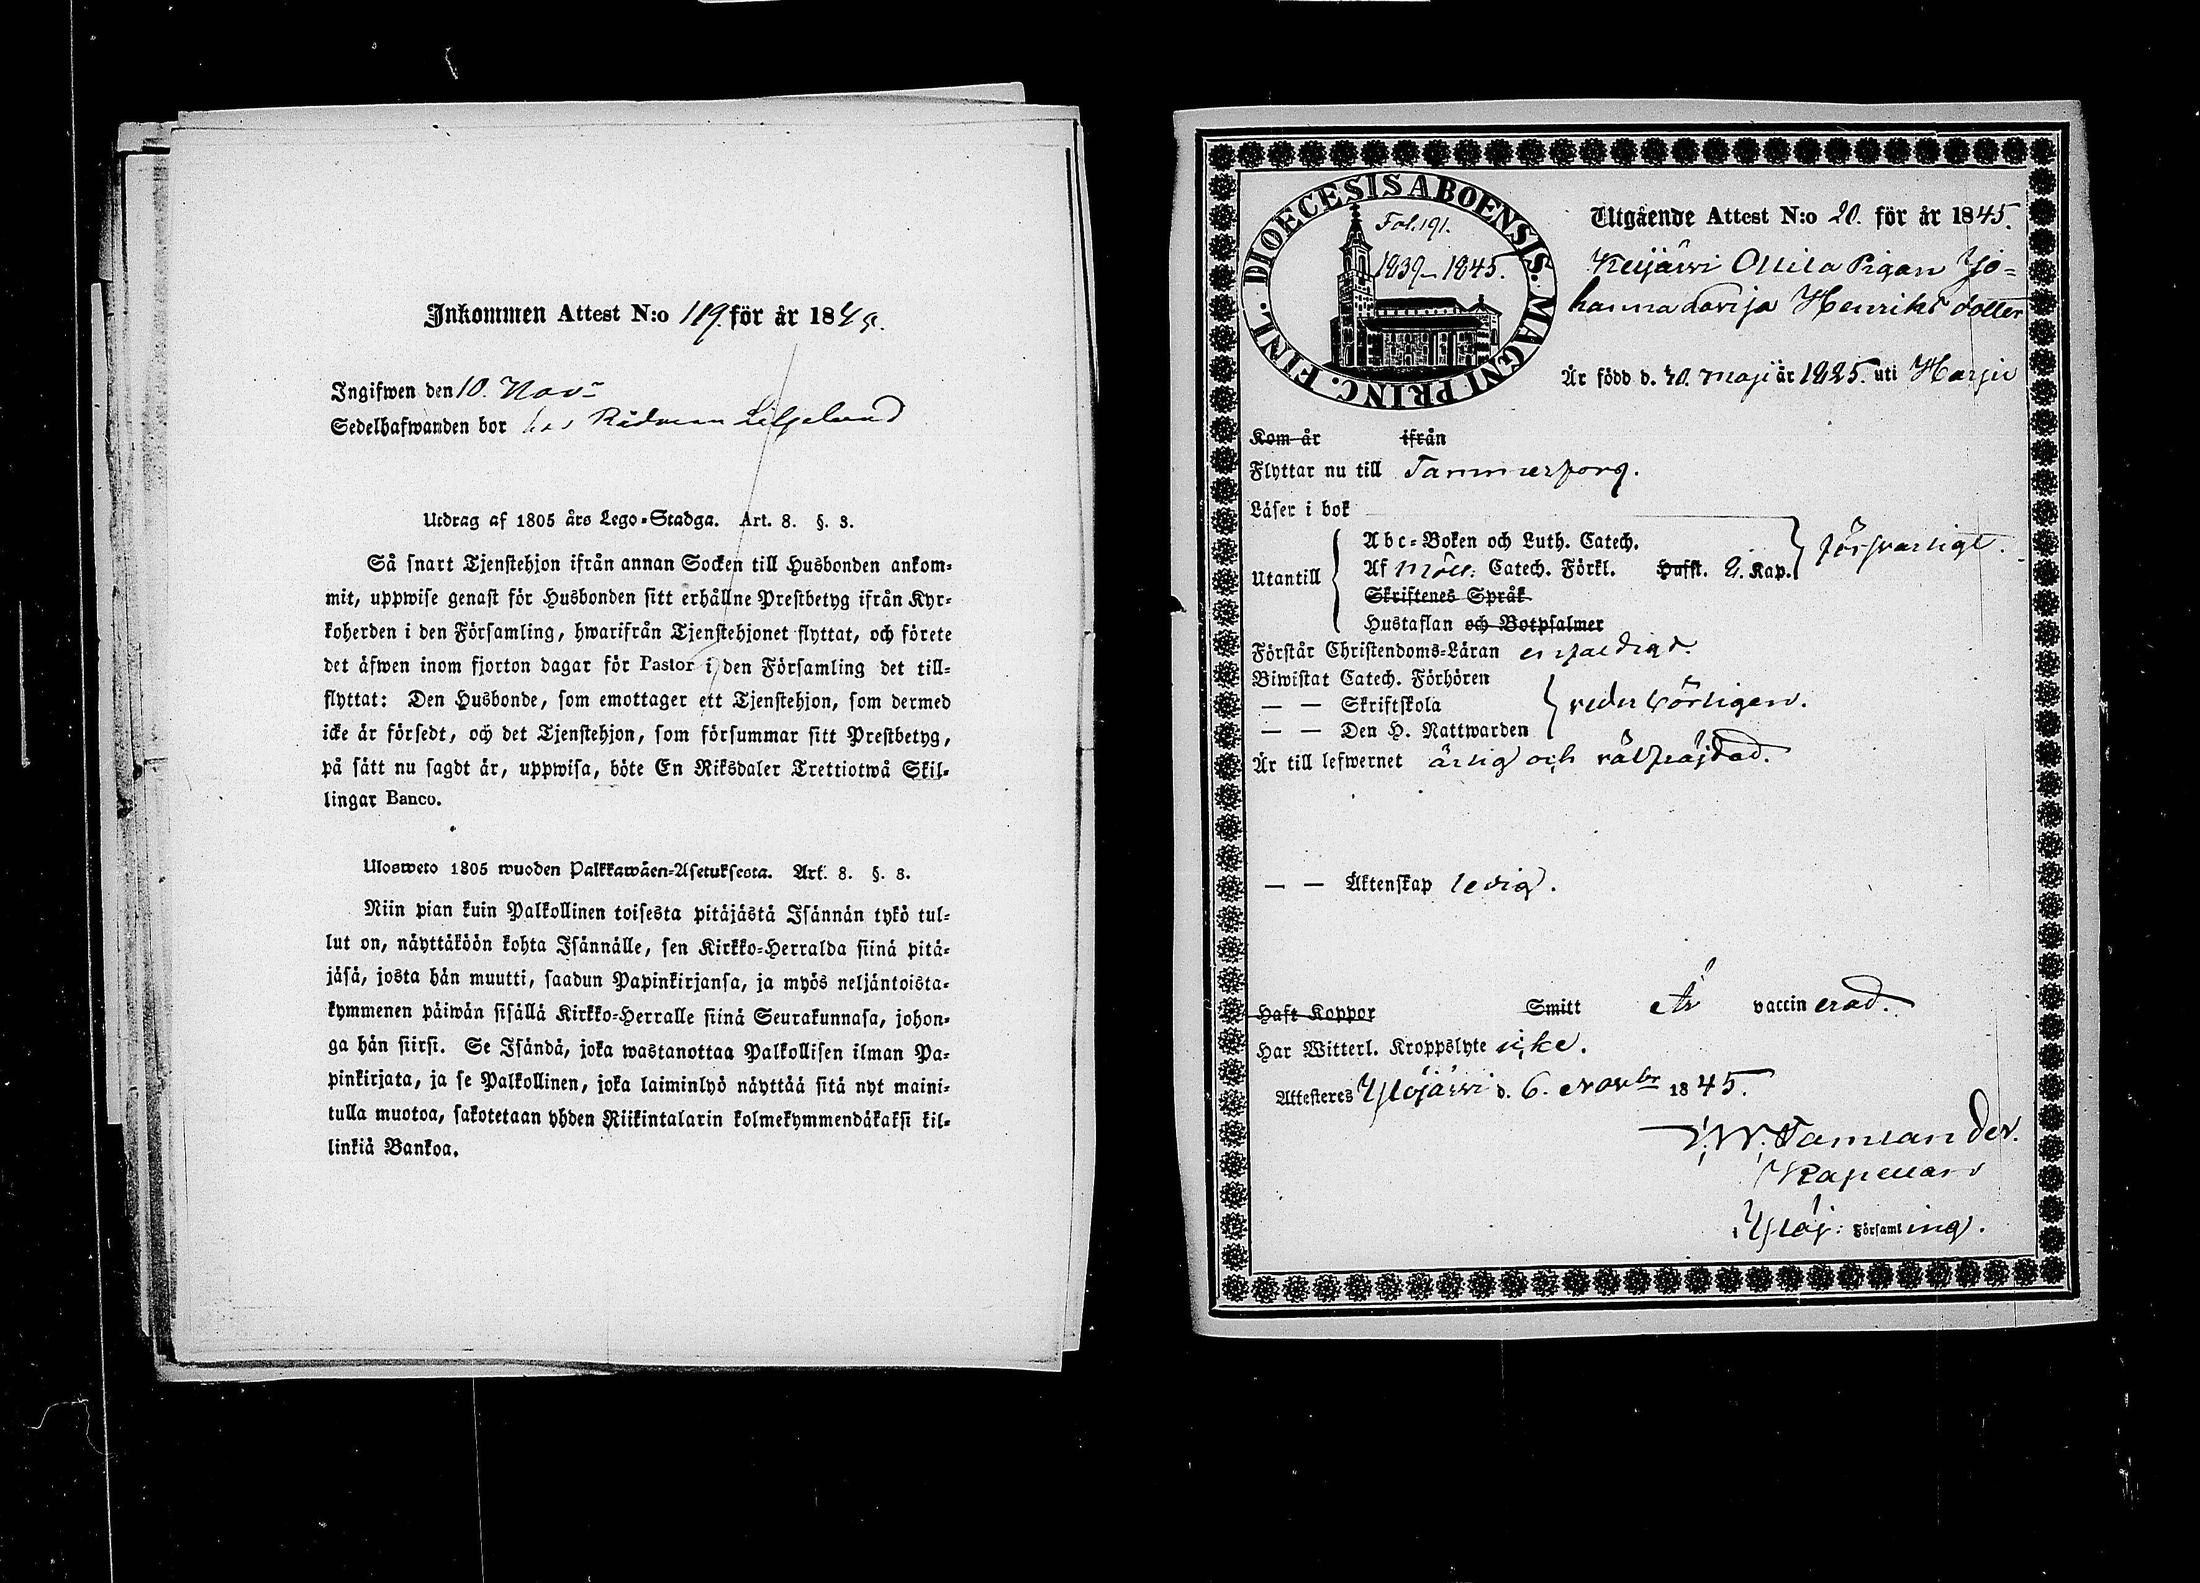 Inkommen Attest N:o 119. för år 1845.
Ingifwen den 10. Novr
Sedelhafwanden bor hos Rådman Liljelund
Utdrag af 1805 års Lego-Stadga. Art. 8. §. 8.
Så snart Tjenstehjon ifrån annan Socken till Husbonden ankom-
mit, uppwise genast för Husbonden sitt erhållne Prestbetyg ifrån Kyr-
koherden i den Församling, hwarifrån Tjenstehjonet flyttat, och förete
det äfwen inom fjorton dagar för Pastor i den Församling det till-
flyttat: Den Husbonde, som emottager ett Tjenstehjon, som dermed
icke är försedt, och det Tjenstehjon, som försummar sitt Prestbetyg,
på sätt nu sagdt är, uppwisa, böte En Riksdaler Trettiotwå Skil-
lingar Banco.
Ulosweto 1805 wuoden Palkkawäen-Asetuksesta. Art. 8. §. 8.
Niin pian kuin Palkollinen toisesta pitäjästä Isännän tykö tul-
lut on, näyttäköön kohta Isännälle, sen Kirkko-Herralda siinä pitä-
jäsä, josta hän muutti, saadun Papinkirjansa, ja myös neljäntoista-
kymmenen päiwän sisällä Kirkko-Herralle siinä Seurakunnasa, johon-
ga hän siirsi. Se Isändä, joka wastanottaa Palkollisen ilman Pa-
pinkirjata, ja se Palkollinen, joka laiminlyö näyttää sitä nyt maini-
tulla muotoa, sakotetaan yhden Riikintalarin kolmekymmendäkaksi kil-
linkiä Bankoa.
DIOECESIS ABOENSIS. MAGNI PRINC. FINL.
Fol. 191.
1839-1845.
Utgående Attest N:o 20. för år 1845.
Keijärvi Ollila Pigan Jo-
hanna Lovisa Henriksdotter
Är född d. 10. Maji år 1825. uti Harju
Kom år ifrån
Flyttar nu till Tammerforg.
Läser i bok
Utantill
Abc-Boken och Luth. Catech.
Af Möll: Catech. Förkl. Hufst. 2. Kap.
Skriftenes Språk
Hustaflan och Botpsalmer
försvarligt.
Förstår Christendoms-Läran enfaldigt.
Biwistat Catech. Förhören
— — Skriftskola
— — Den H. Nattwarden
vederbörligen.
Är till lefwernet ärlig och välfräjdad.
— — Äktenskap ledig.
Haft Koppor Smitt Är vaccinerad.
Har Witterl. Kroppslyte icke.
Attesteres Ylöjärvi d. 6. Novembr 1845.
W. Tamlander.
Kapellan i
Ylöj: Församling.